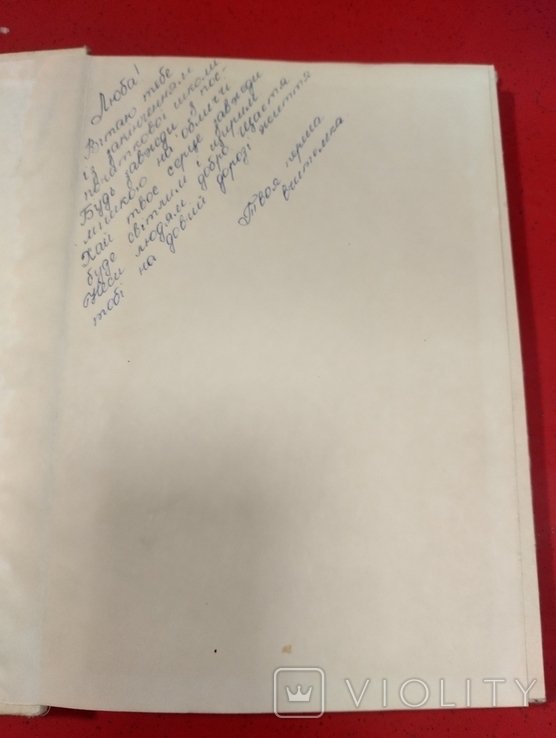 Люба!
Вітаю тебе
із закінченням
початкової школи
Будь завжди з пос-
мішкою на обличчі
Хай твоє серце завжди
буде світлим і щирим
Неси людям добро щастя
тобі на довгій дорозі життя
Твоя перша
вчителька
VIOLITY